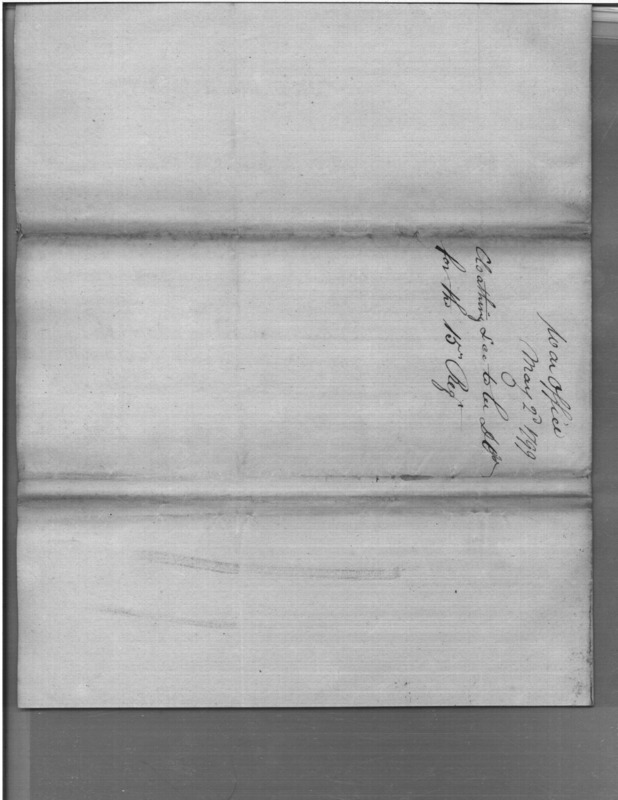 War Office
May 2d 1799
Cloathing &ca to be
for the 15th Regt